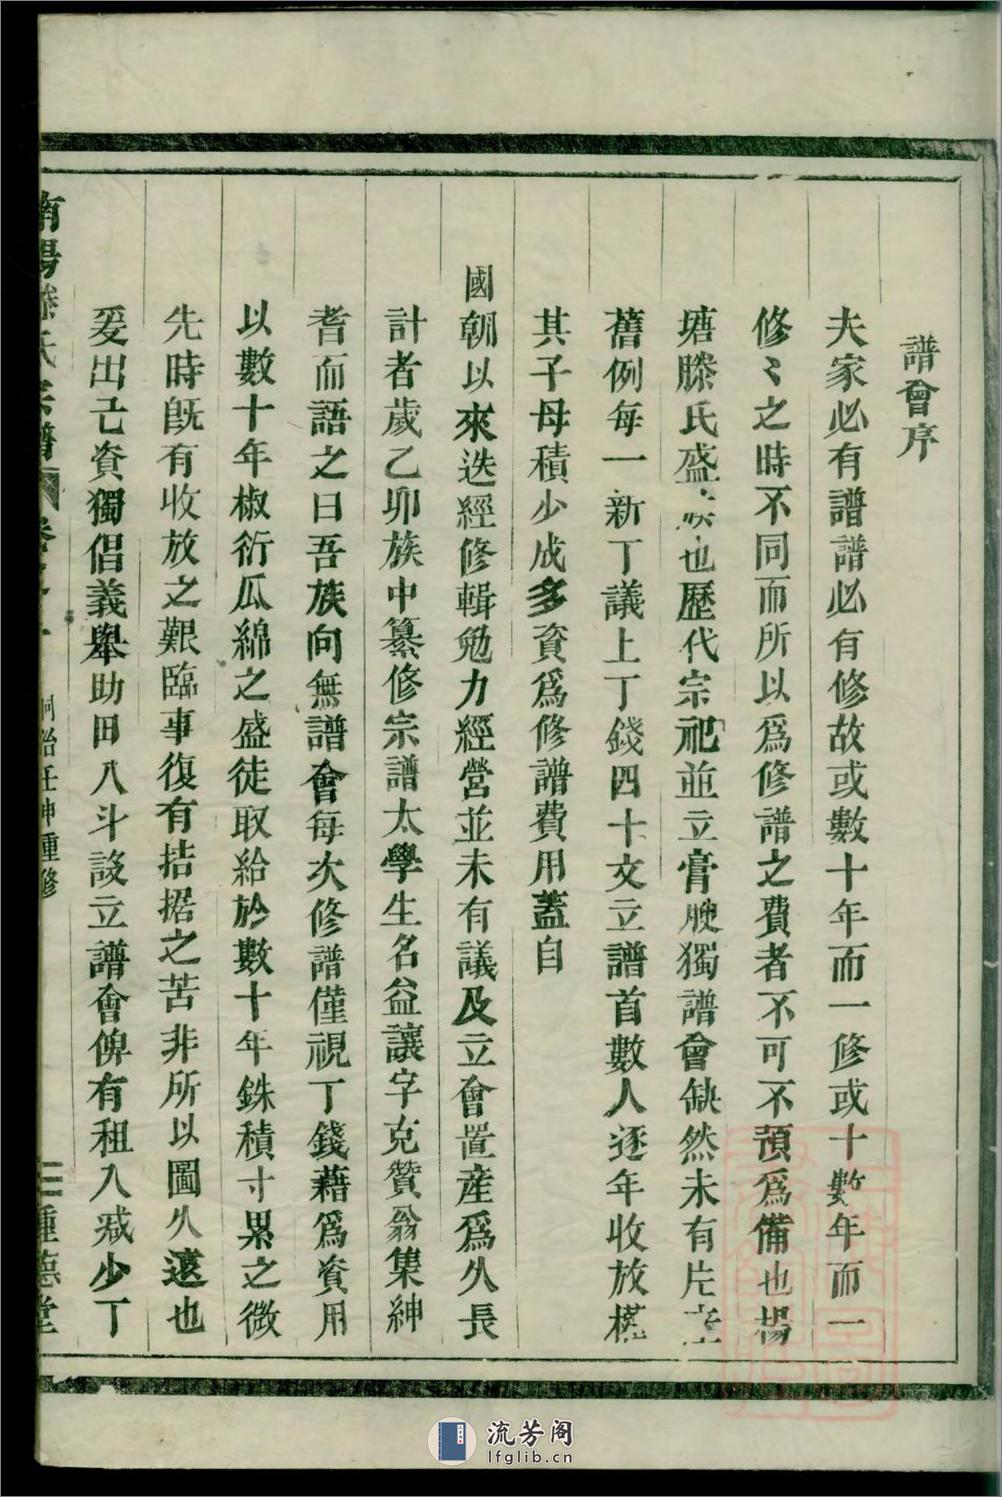 譜會序
夫家必有譜譜必有修故或數十年而一修或十數年而一
修〻之時不同而所以爲修譜之費者不可不預爲備也楊
塘滕氏盛族也歷代宗祀並立膏腴獨譜會缺然未有片產
舊例每一新丁議上丁錢四十文立譜首數人逐年收放權
其子母積少成多資爲修譜費用蓋自
國朝以來迭經修輯勉力經營並未有議及立會置産爲久長
計者歲乙卯族中纂修宗譜太學生名益讓字克贊翁集紳
耆而語之曰吾族向無譜會每次修譜僅視丁錢藉爲資用
以數十年椒衍瓜綿之盛徒取給於數十年銖積寸累之微
先時旣有收放之艱臨事復有拮据之苦非所以圖久遠也
爰出己資獨倡義舉助田八斗設立譜會俾有租入减少丁
南陽滕氏宗譜 卷之 同治壬申重修 二 種德堂
流芳阁
lfglib.cn